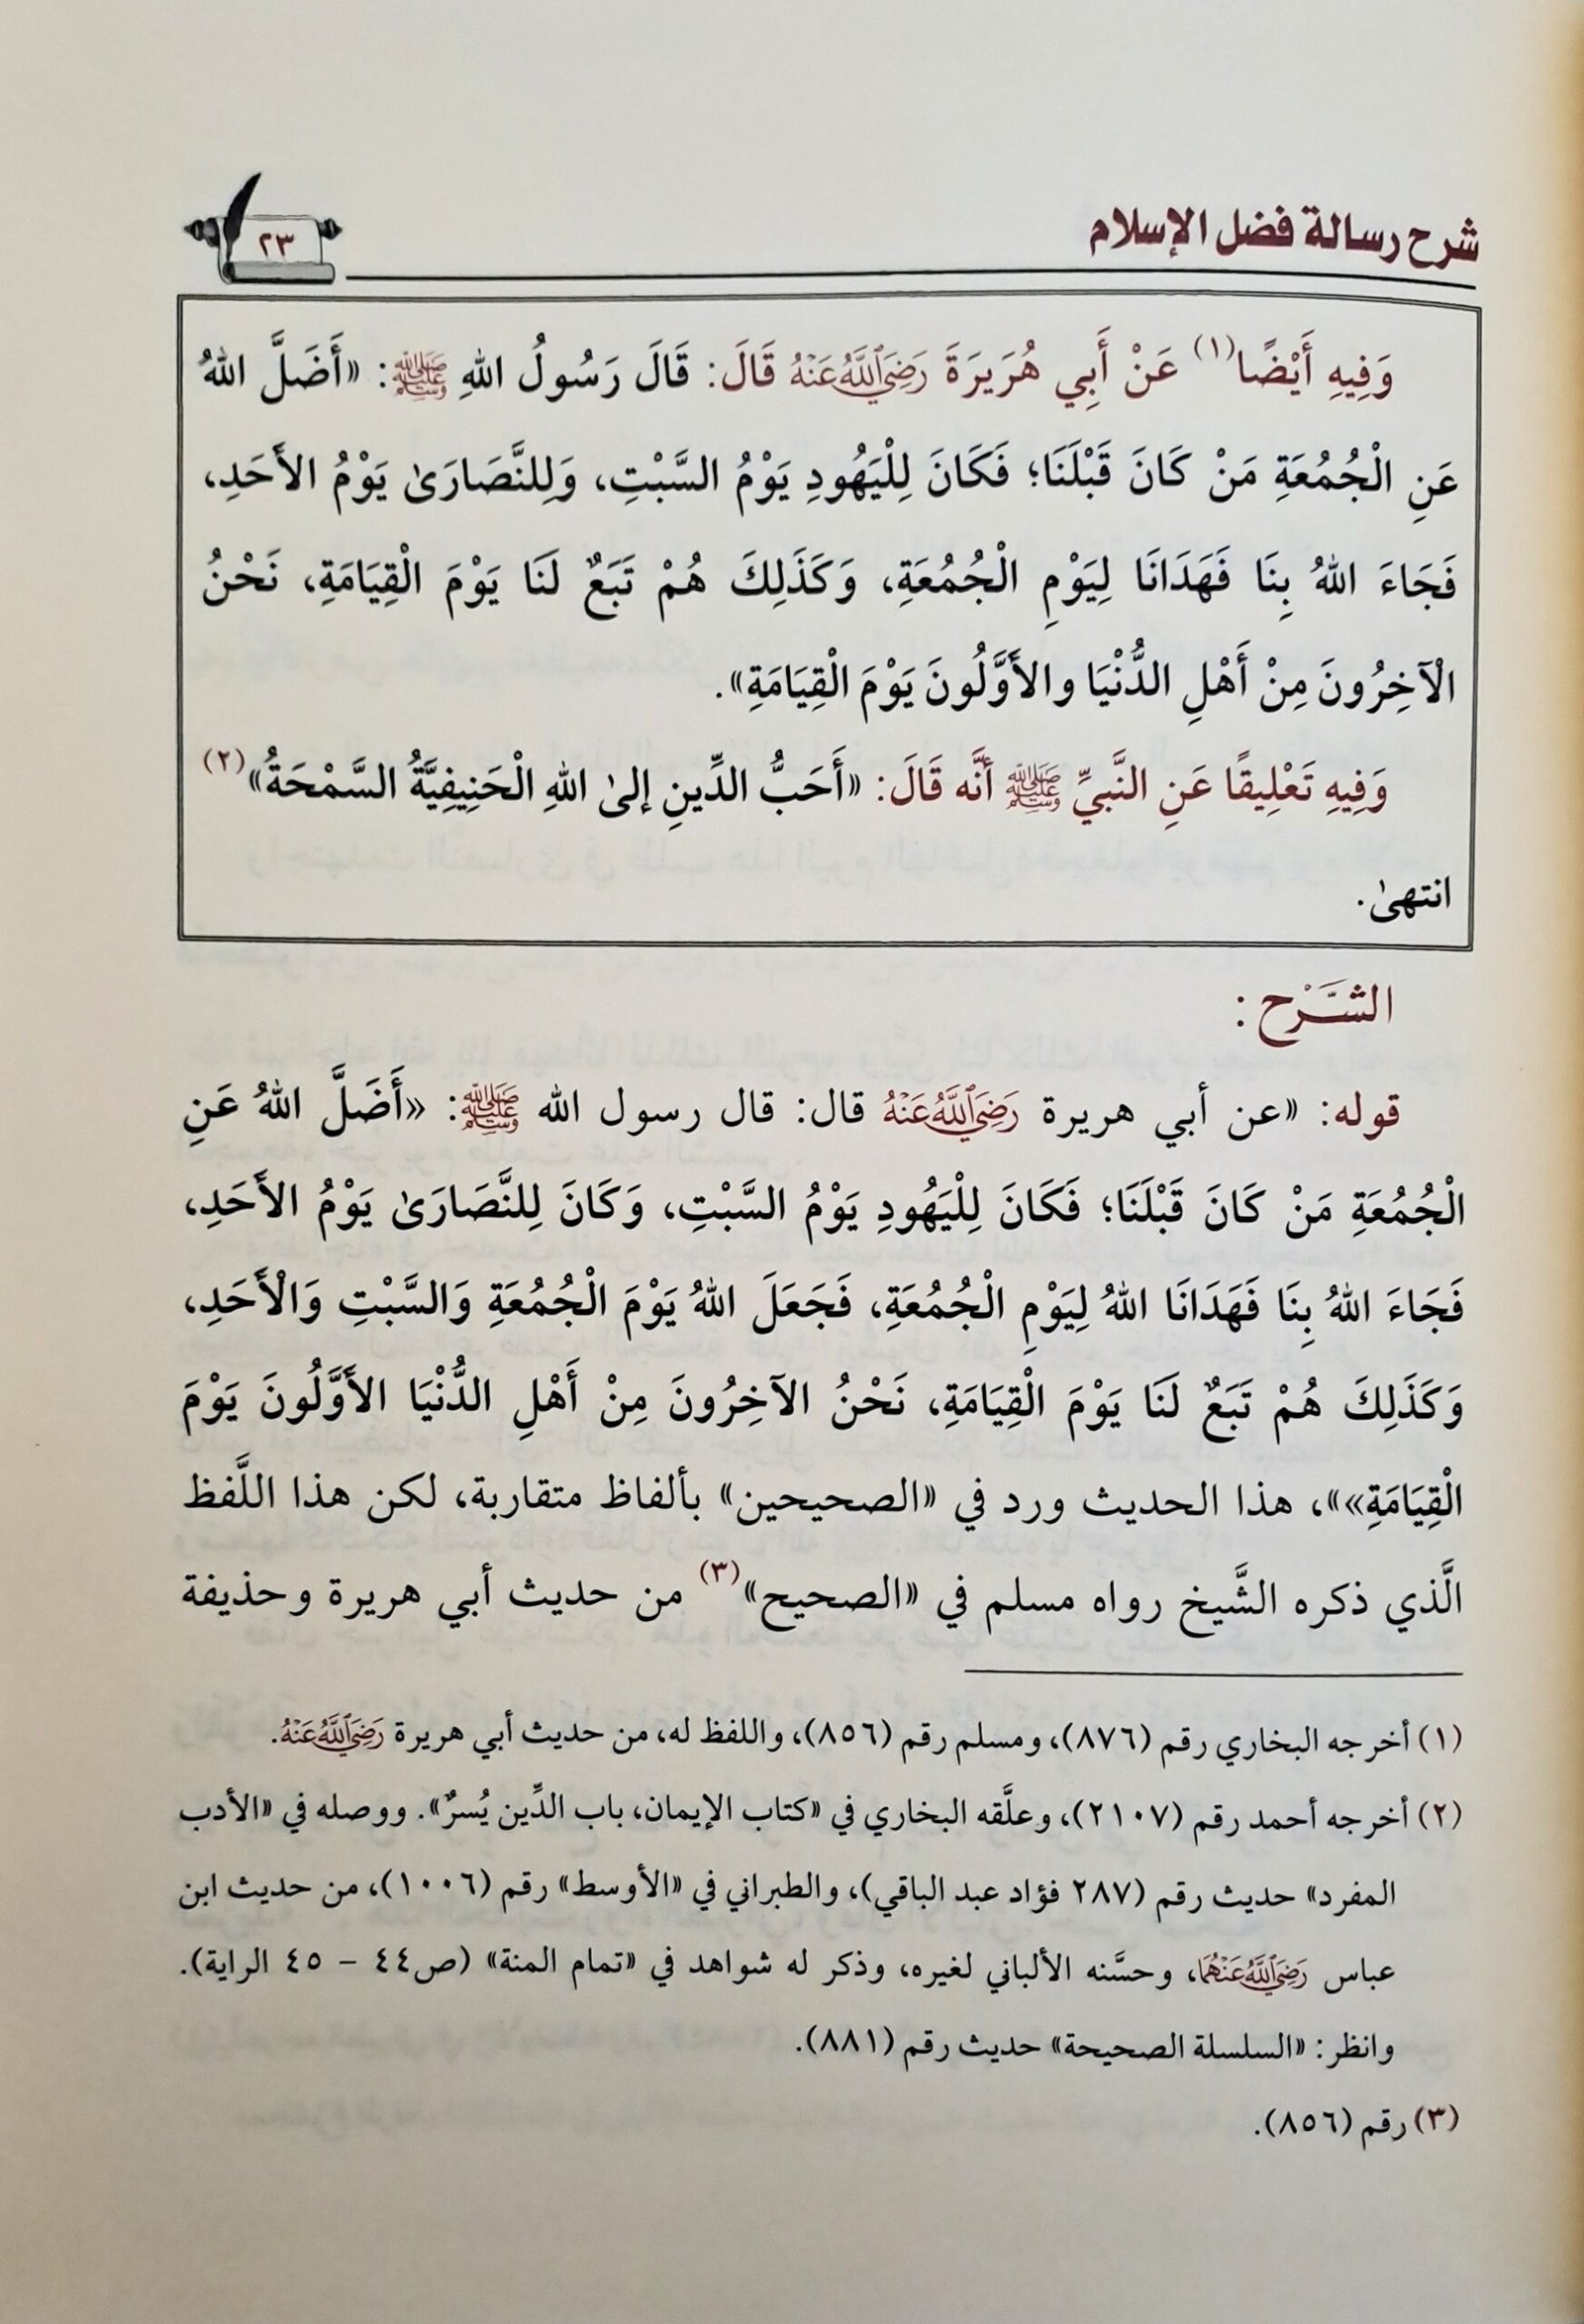 شرح رسالة فضل الإسلام
٢٣
وَفِيهِ أَيْضًا(١) عَنْ أَبِي هُرَيْرَةَ رَضِيَ اللَّهُ عَنْهُ قَالَ: قَالَ رَسُولُ اللهِ ﷺ: «أَضَلَّ اللهُ
عَنِ الْجُمُعَةِ مَنْ كَانَ قَبْلَنَا؛ فَكَانَ لِلْيَهُودِ يَوْمُ السَّبْتِ، وَلِلنَّصَارَىٰ يَوْمُ الأَحَدِ،
فَجَاءَ اللهُ بِنَا فَهَدَانَا لِيَوْمِ الْجُمُعَةِ، وَكَذَلِكَ هُمْ تَبَعٌ لَنَا يَوْمَ الْقِيَامَةِ، نَحْنُ
الْآخِرُونَ مِنْ أَهْلِ الدُّنْيَا والأَوَّلُونَ يَوْمَ الْقِيَامَةِ».
وَفِيهِ تَعْلِيقًا عَنِ النَّبيِّ ﷺ أنَّه قَالَ: «أَحَبُّ الدِّينِ إلىٰ اللهِ الْحَنِيفِيَّةُ السَّمْحَةُ»(٢)
انتهىٰ.
الشَّرْح :
قوله: «عن أبي هريرة رَضِيَ اللَّهُ عَنْهُ قال: قال رسول الله ﷺ: «أَضَلَّ اللهُ عَنِ
الْجُمُعَةِ مَنْ كَانَ قَبْلَنَا؛ فَكَانَ لِلْيَهُودِ يَوْمُ السَّبْتِ، وَكَانَ لِلنَّصَارَىٰ يَوْمُ الأَحَدِ،
فَجَاءَ اللهُ بِنَا فَهَدَانَا اللهُ لِيَوْمِ الْجُمُعَةِ، فَجَعَلَ اللهُ يَوْمَ الْجُمُعَةِ وَالسَّبْتِ وَالْأَحَدِ،
وَكَذَلِكَ هُمْ تَبَعٌ لَنَا يَوْمَ الْقِيَامَةِ، نَحْنُ الآخِرُونَ مِنْ أَهْلِ الدُّنْيَا الأَوَّلُونَ يَوْمَ
الْقِيَامَةِ»»، هذا الحديث ورد في «الصحيحين» بألفاظ متقاربة، لكن هذا اللَّفظ
الَّذي ذكره الشَّيخ رواه مسلم في «الصحيح»(٣) من حديث أبي هريرة وحذيفة
(١) أخرجه البخاري رقم (٨٧٦)، ومسلم رقم (٨٥٦)، واللفظ له، من حديث أبي هريرة رَضِيَ اللَّهُ عَنْهُ.
(٢) أخرجه أحمد رقم (٢١٠٧)، وعلَّقه البخاري في «كتاب الإيمان، باب الدِّين يُسرٌ». ووصله في «الأدب
المفرد» حديث رقم (٢٨٧ فؤاد عبد الباقي)، والطبراني في «الأوسط» رقم (١٠٠٦)، من حديث ابن
عباس رَضِيَ اللَّهُ عَنْهُمَا، وحسَّنه الألباني لغيره، وذكر له شواهد في «تمام المنة» (ص٤٤ – ٤٥ الراية).
وانظر: «السلسلة الصحيحة» حديث رقم (٨٨١).
(٣) رقم (٨٥٦).